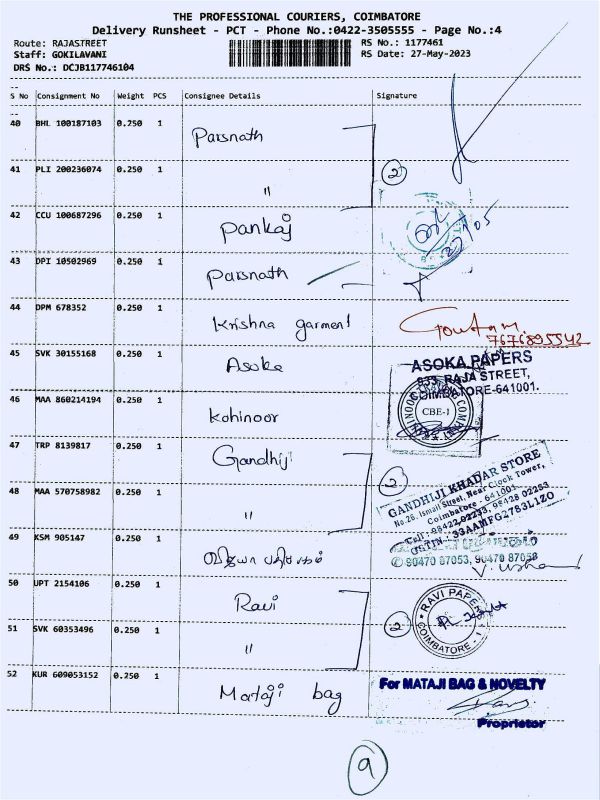 THE PROFESSIONAL COURIERS, COIMBATORE
Delivery Runsheet - PCT - Phone No.:0422-3505555 - Page No.:4
Route: RAJASTREET RS No.: 1177461
Staff: GOKILAVANI RS Date: 27-May-2023
DRS No.: DCJB117746104
S No Consignment No Weight PCS Consignee Details Signature
40 BHL 100187103 0.250 1 Parsnath
41 PLI 200236074 0.250 1 " 2
42 CCU 100687296 0.250 1 Pankaj
43 DPI 10502969 0.250 1 Parsnath
44 DPM 678352 0.250 1 Krishna garment Goutam.
7676895542
45 SVK 30155168 0.250 1 Asoka ASOKA PAPERS
RAJA STREET,
COIMBATORE-641001.
46 MAA 860214194 0.250 1 Kohinoor CBE-1
47 TRP 8139817 0.250 1 Gandhiji 2
GANDHIJI KHADAR STORE
No.26, Ismail Street, Near Clock Tower,
Coimbatore - 641001
48 MAA 570758982 0.250 1 "
49 KSM 905147 0.250 1 விஜயா பதிப்பகம்
90470 87053, 90470 87058
50 UPT 2154106 0.250 1 Ravi RAVI PAPER
COIMBATORE - 1
51 SVK 60353496 0.250 1 " 2
52 KUR 609053152 0.250 1 Mataji bag For MATAJI BAG & NOVELTY
Proprietor
9